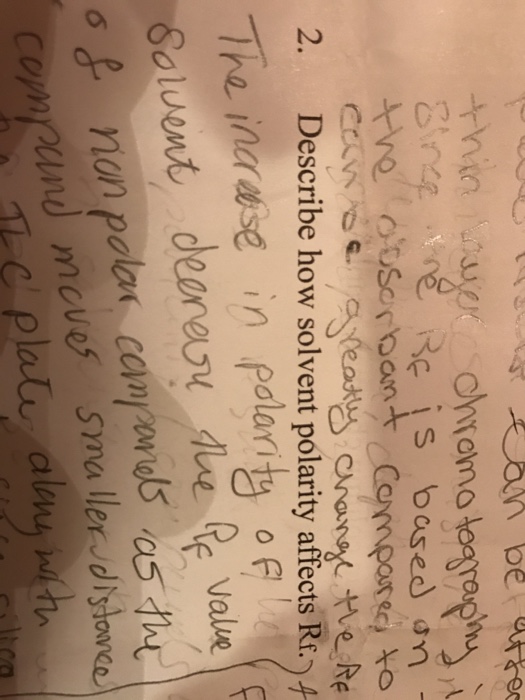 can be
thin layer chromatography
Since the RF is based on
the absorbant compared to
can greatly change the Rf
2. Describe how solvent polarity affects Rf.
The increase in polarity of
Solvent, decrease the Rf value
of nonpolar compands as the
compand moves smaller distances
TLC plate along with